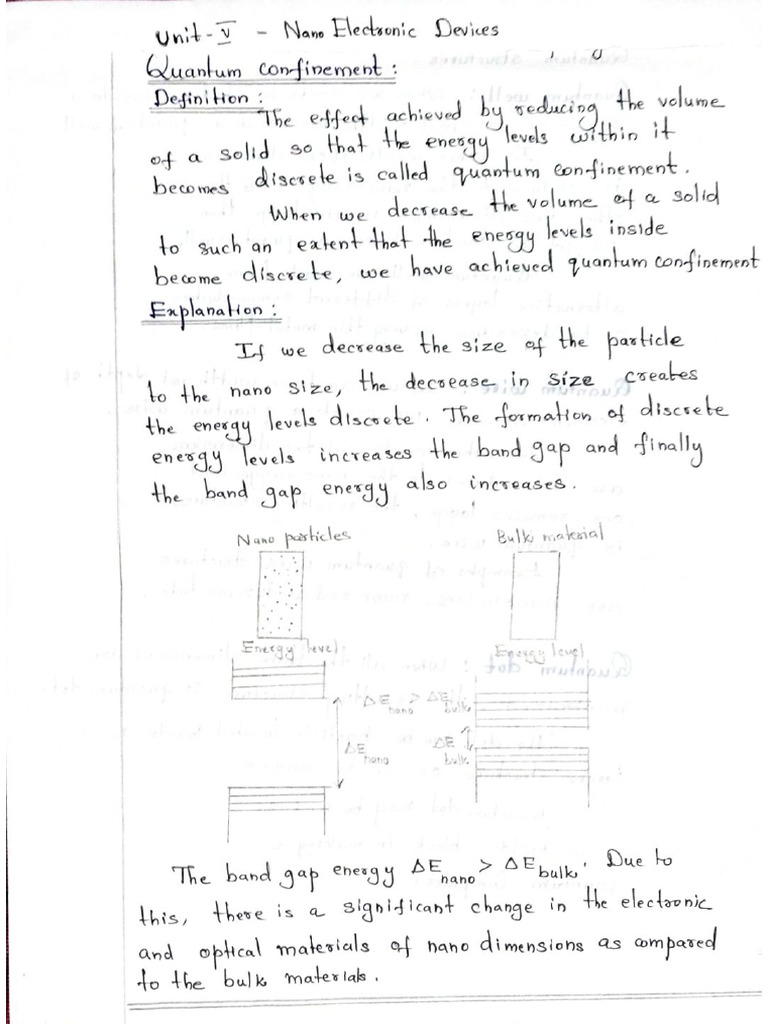 Unit-V - Nano Electronic Devices
Quantum confinement :
Definition :
The effect achieved by reducing the volume
of a solid so that the energy levels within it
becomes discrete is called quantum confinement.
When we decrease the volume of a solid
to such an extent that the energy levels inside
become discrete, we have achieved quantum confinement
Explanation :
If we decrease the size of the particle
to the nano size, the decrease in size creates
the energy levels discrete. The formation of discrete
energy levels increases the band gap and finally
the band gap energy also increases.
Nano particles Bulk material
Energy level Energy level
ΔE nano > ΔE bulk
ΔE nano ΔE bulk
The band gap energy ΔE nano > ΔE bulk. Due to
this, there is a significant change in the electronic
and optical materials of nano dimensions as compared
to the bulk materials.